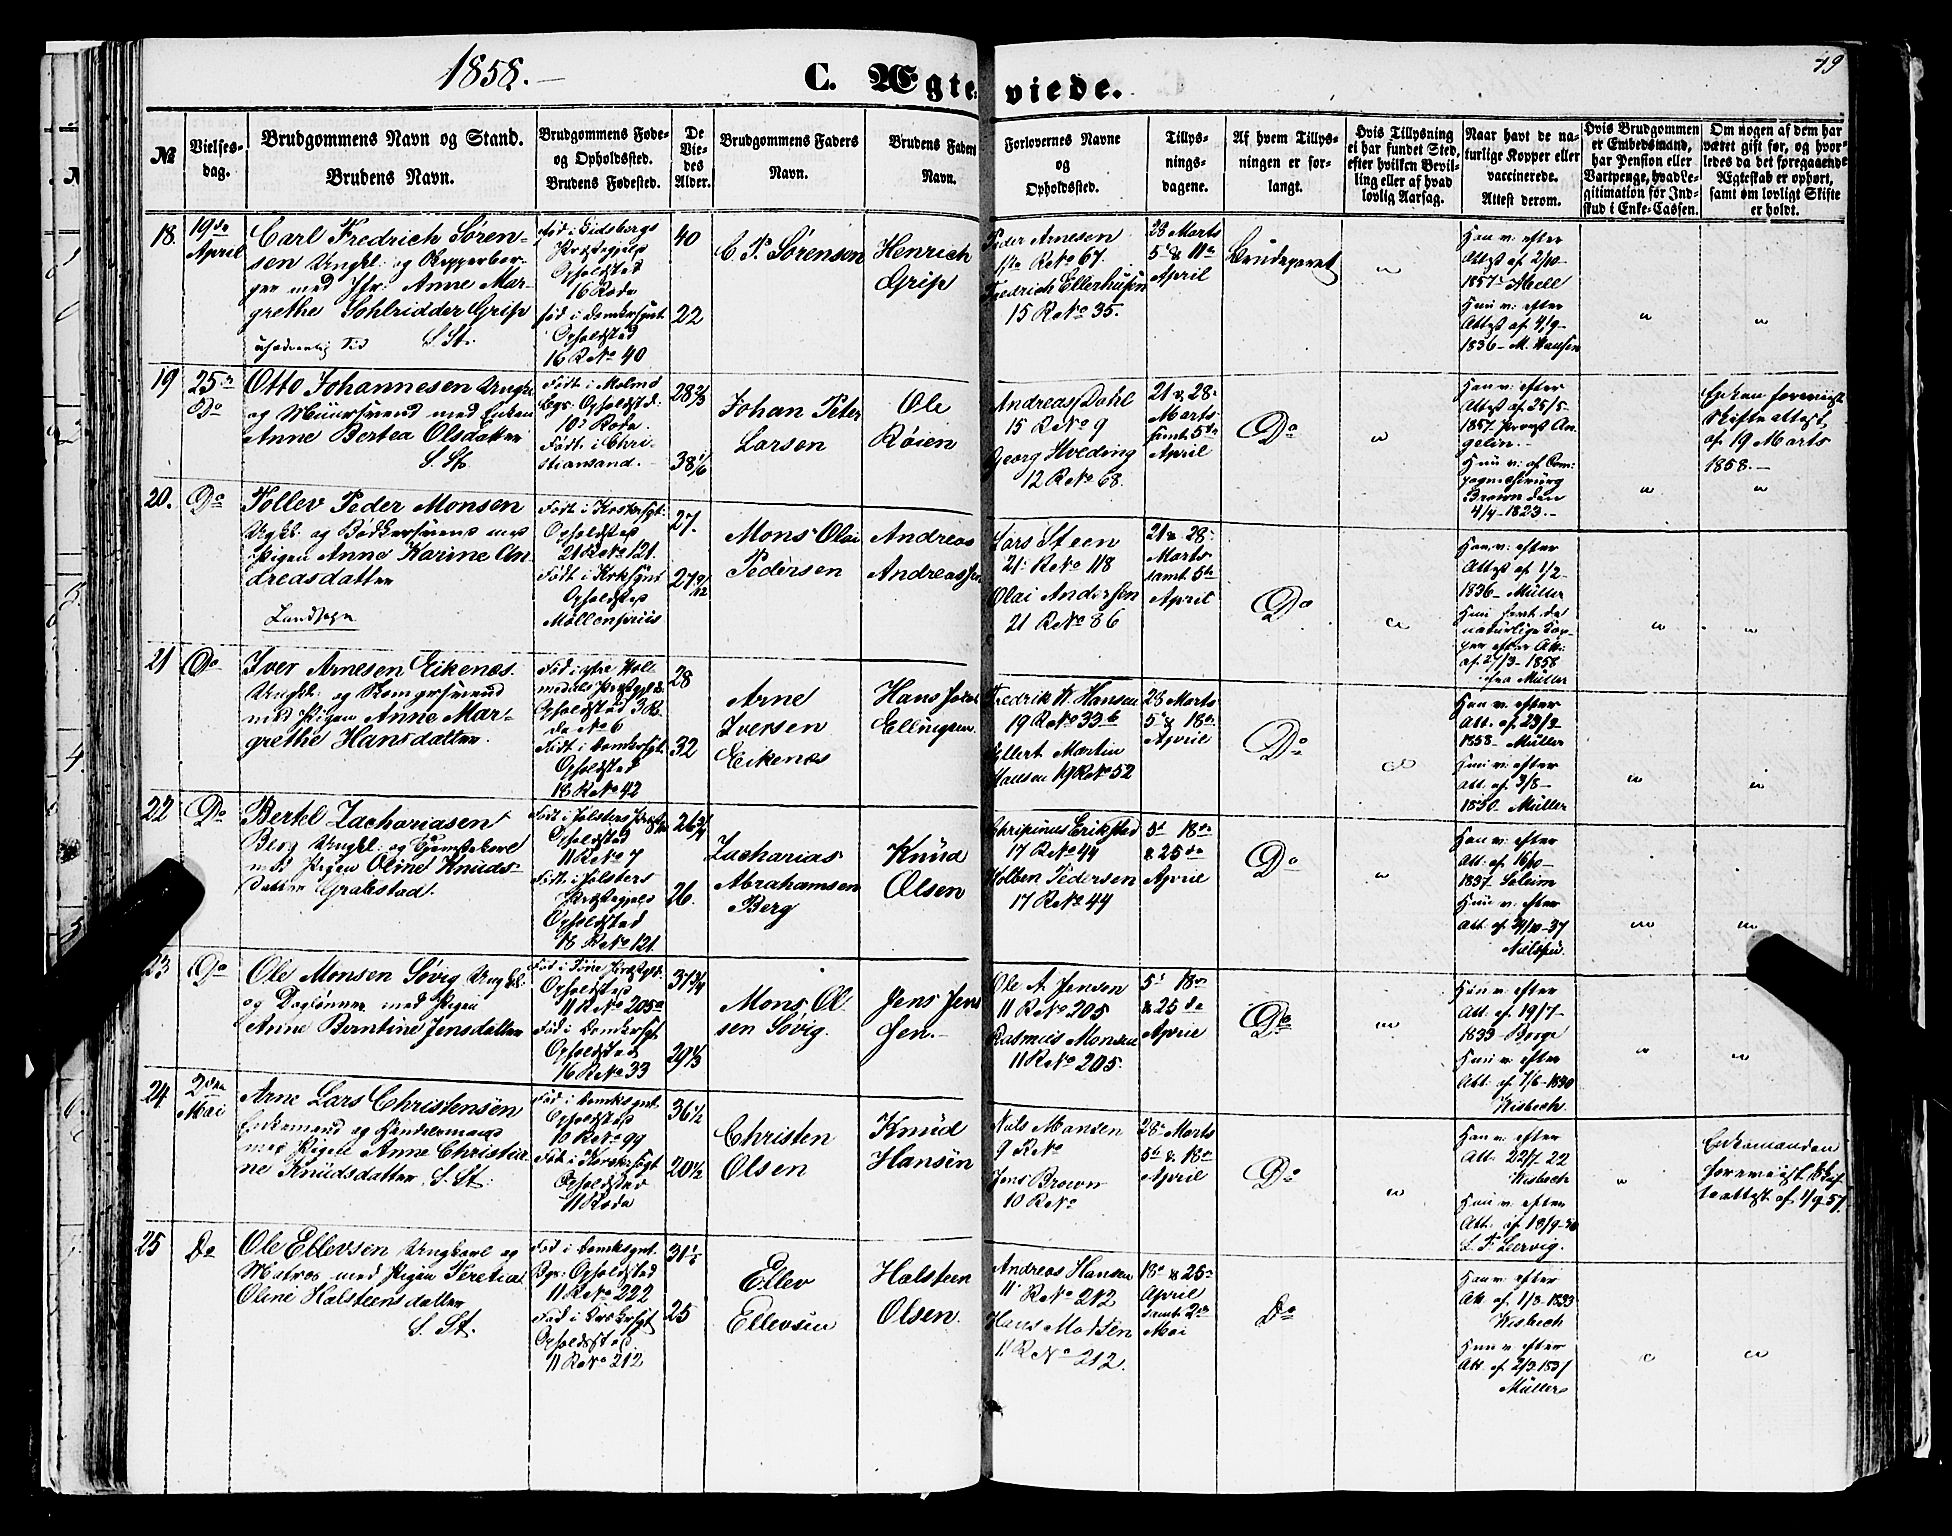 1858.
49
C. Ægteviede.
№
Vielses-
dag.
Brudgommens Navn og Stand.
Brudens Navn.
Brudgommens Føde-
og Opholdssted.
Brudens Fødested.
De
Vie-
des
Alder.
Brudgommens Faders
Navn.
Brudens Faders
Navn.
Forlovernes Navne
og
Opholdssted.
Tillys-
nings-
dagene.
Af hvem Tillys-
ningen er for-
langt.
Hvis Tillysning
ei har fundet Sted,
efter hvilken Bevil-
ling eller af hvad
lovlig Aarsag.
Naar havt de na-
turlige Kopper eller
vaccinerede.
Attest derom.
Hvis Brudgommen
er Embedsmand,
har Pension eller
Vartpenge, hvad Le-
gitimation for Ind-
skud i Enke-Cassen.
Om nogen af dem har
været gift før, og hvor-
ledes da det foregaaende
Ægteskab er ophørt,
samt om lovligt Skifte
er holdt.
18.
19de
April
Carl Fredrich Søren-
sen Ungkl: og
med Jfr. Anne Mar-
grethe Grip
S. St.
Opholdsted
16 Rode
Opholdsted
16 R No 40
40
22
C. P. Sørensen
Henrich
Grip
Peder Arnesen
R No 67.
Fredrich Ellerhusen
15 R No 35.
28 Marts
5t & 11te
April
Brudeparet
Han v: efter
Attest af 2/10
1857
Hun v: efter
Attest af 4/9-
1836 - M. Hansen
19
25de
Do
Otto Johannesen Ungkl.
og Muursvend med Enken
Anne Bertea Olsdatter
S. St.
10de Rode.
Født i Chri-
stiansand.
28 2/3
38 1/6
Johan Peter
Larsen
Ole
Røien
Andreas Dahl
15 R No 9
Georg Hveding
12 R No 68.
21 & 28
Marts
samt 5te
April
Do
Han v: efter
Attest af 25/5-
1857 Provst An-
gelin.
Hun v: af Com-
pagnechirurg
Brown den
4/4-1823.
Enken foreviist
Skifteattest
af 19 Marts
1858.
20.
Do
Tollev Peder Monsen
Ungkl. og Bødkersvend med
Pigen Anne Karine An-
dreasdatter
Landsogn
Født i Korskirksgt.
Opholdsted
21 R No 121.
Opholdsted
Møllenpriis
27.
27 9/12
Mons Olai
Pedersen
Andreas
Andreassen
Lars Steen
21 R No 118
Olai Andersen
21 R No 86
21 & 28
Marts
samt 5te
April
Do
Han v: efter
Attest af 1/2-
1836 - Müller
Hun havt de
naturlige Kop-
per efter Att:
af 27/3-1858
fra Müller
21
Do
Iver Arnesen Eikenæs.
Ungkl: og
med Pigen Anne Mar-
grethe Hansdatter.
Opholdsted 3 R.
de No 6
Født i Domkirksgt.
Opholdsted
18 R No 42
28
32
Arne
Iversen
Eikenæs
Hans
Ellingsen
Fredrik W. Hansen
19 R No 33b
Ellert Martin
Hansen 19 R No 52
28 Marts
5t & 18de
April
Do
Han v: efter
Att. af 23/2-
1858 - Müller
Hun v: efter
Att. af 3/8-
1830 Müller
22
Do
Bertel Zachariasen
Berg Ungkl: og
med Pigen Oline Knuds-
datter Grabstad.
Født i Jølsters Præstegj
Opholdsted
11 R No 7
Født i Jølsters
Præstegjeld
Opholdsted
18 R No 121.
26 3/4
26.
Zacharias
Abrahamsen
Berg
Knud
Olsen
Erikstad
17 R No 44
Pedersen
17 R No 44
5t 18de
& 25de
April
Do
Han v: efter
Att: af 16/10-
1837
Hun v: efter
23
Do
Ole Monsen Søvig Ungkl:
og Daglønner med Pigen
Anne Berntine Jensdatter
Opholdsted
11 R No 205a
Født i Domkirksgt
Opholdsted
16 R No 33
37 3/4
29 1/3
Mons Ol-
sen Søvig.
Jens Jen-
sen.
Ole A. Jensen
11 R No 205
Rasmus Monsen
11 R No 205.
5t 18de
& 25de
April
Do
Han v: efter
Att. af 19/7-
1833 - Berge
Hun v: efter
Att. af 7/6-1830
Wisbech.
24
2den
Mai
Arne Lars Christensen
Enkemand og Handelsmand
med Pigen Anne Christia-
ne Knudsdatter. S. St.
Født i Domkirksgt.
Opholdsted
10 R No 99
Født i Korskirksgt
Opholdsted
11 Rode
36 1/2
20 1/2
Christen
Olsen
Knud
Hansen
Niels Monsen
9 R No
Jens Brown
10 R No
28 Marts
5te & 18de
April
Do
Han v: efter
Att. 22/7-22
Wisbech
Hun v: efter
Enkemanden
foreviist Skif-
teattest af 1/9-57.
25
Do
Ole Ellevsen Ungkarl og
Matros med Pigen Seretia
Oline Halsteensdatter
S. St.
Født i Domksgt.
Bgn: Opholdsted
11 R No 222
Født i Korskirksgt
Opholdsted
11 R No 212
31 1/2
25
Ellev
Ellevsen
Halsteen
Olsen.
Andreas Hansen
11 R No 212
Hans Madsen
11 R No 212.
18de & 25de
April
samt 2den
Mai
Do
Han v: efter
Att af 1/3-1833
Wisbech
Hun v. efter
Müller